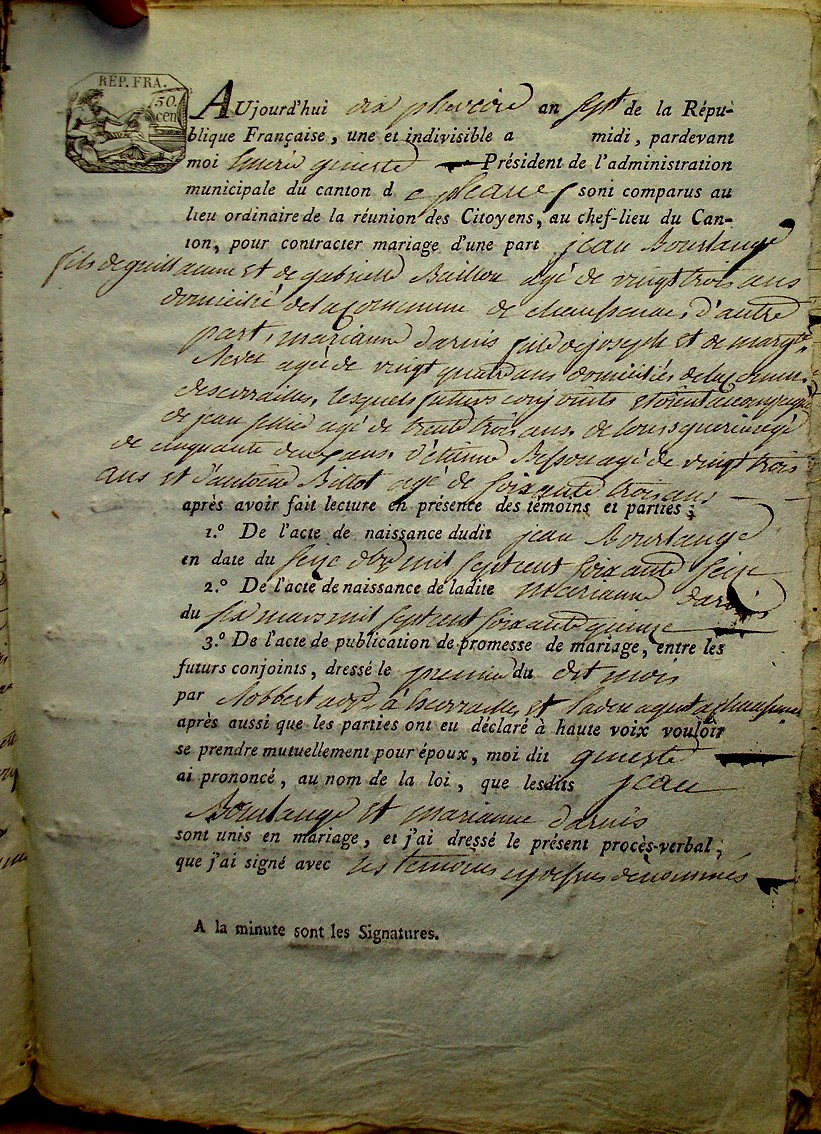 RÉP. FRA.
50.
cen
AUjourd'hui dix pluviose an sept de la Répu-
blique Française, une et indivisible a midi, pardevant
moi gineste Président de l'administration
municipale du canton d e pleaux sont comparus au
lieu ordinaire de la réunion des Citoyens, au chef-lieu du Can-
ton, pour contracter mariage d'une part jean Bourlange
fils de guillaume et de gabrielle Baillou agé de vingt trois ans
domicilié de la Commune de chaussenac, d'autre
part, marianne darnis fille de joseph et de margte
agée de vingt quatre ans domiciliés de la Comune
descorailles, lesquels futurs conjoints etoient accompagnés
de jean agé de trente trois ans, de louis agé
de cinquante deux ans, d'étienne Besson agé de vingt trois
ans et d'antoine Billot agé de soixante trois ans
après avoir fait lecture en présence des témoins et parties;
1.º De l'acte de naissance dudit jean Bourlange
en date du seize mil sept cent soixante seize
2.º De l'acte de naissance de ladite marianne darnis
du six mars mil sept cent soixante quinze
3.º De l'acte de publication de promesse de mariage, entre les
futurs conjoints, dressé le premier du dit mois
par Robbert à Escorrailles et agent a chaussenac
après aussi que les parties ont eu déclaré à haute voix vouloir
se prendre mutuellement pour époux, moi dit gineste
ai prononcé, au nom de la loi, que lesdits jean
Bourlange et marianne darnis
sont unis en mariage, et j'ai dressé le présent procès-verbal;
que j'ai signé avec les temoins cy dessus dénommés
A la minute sont les Signatures.